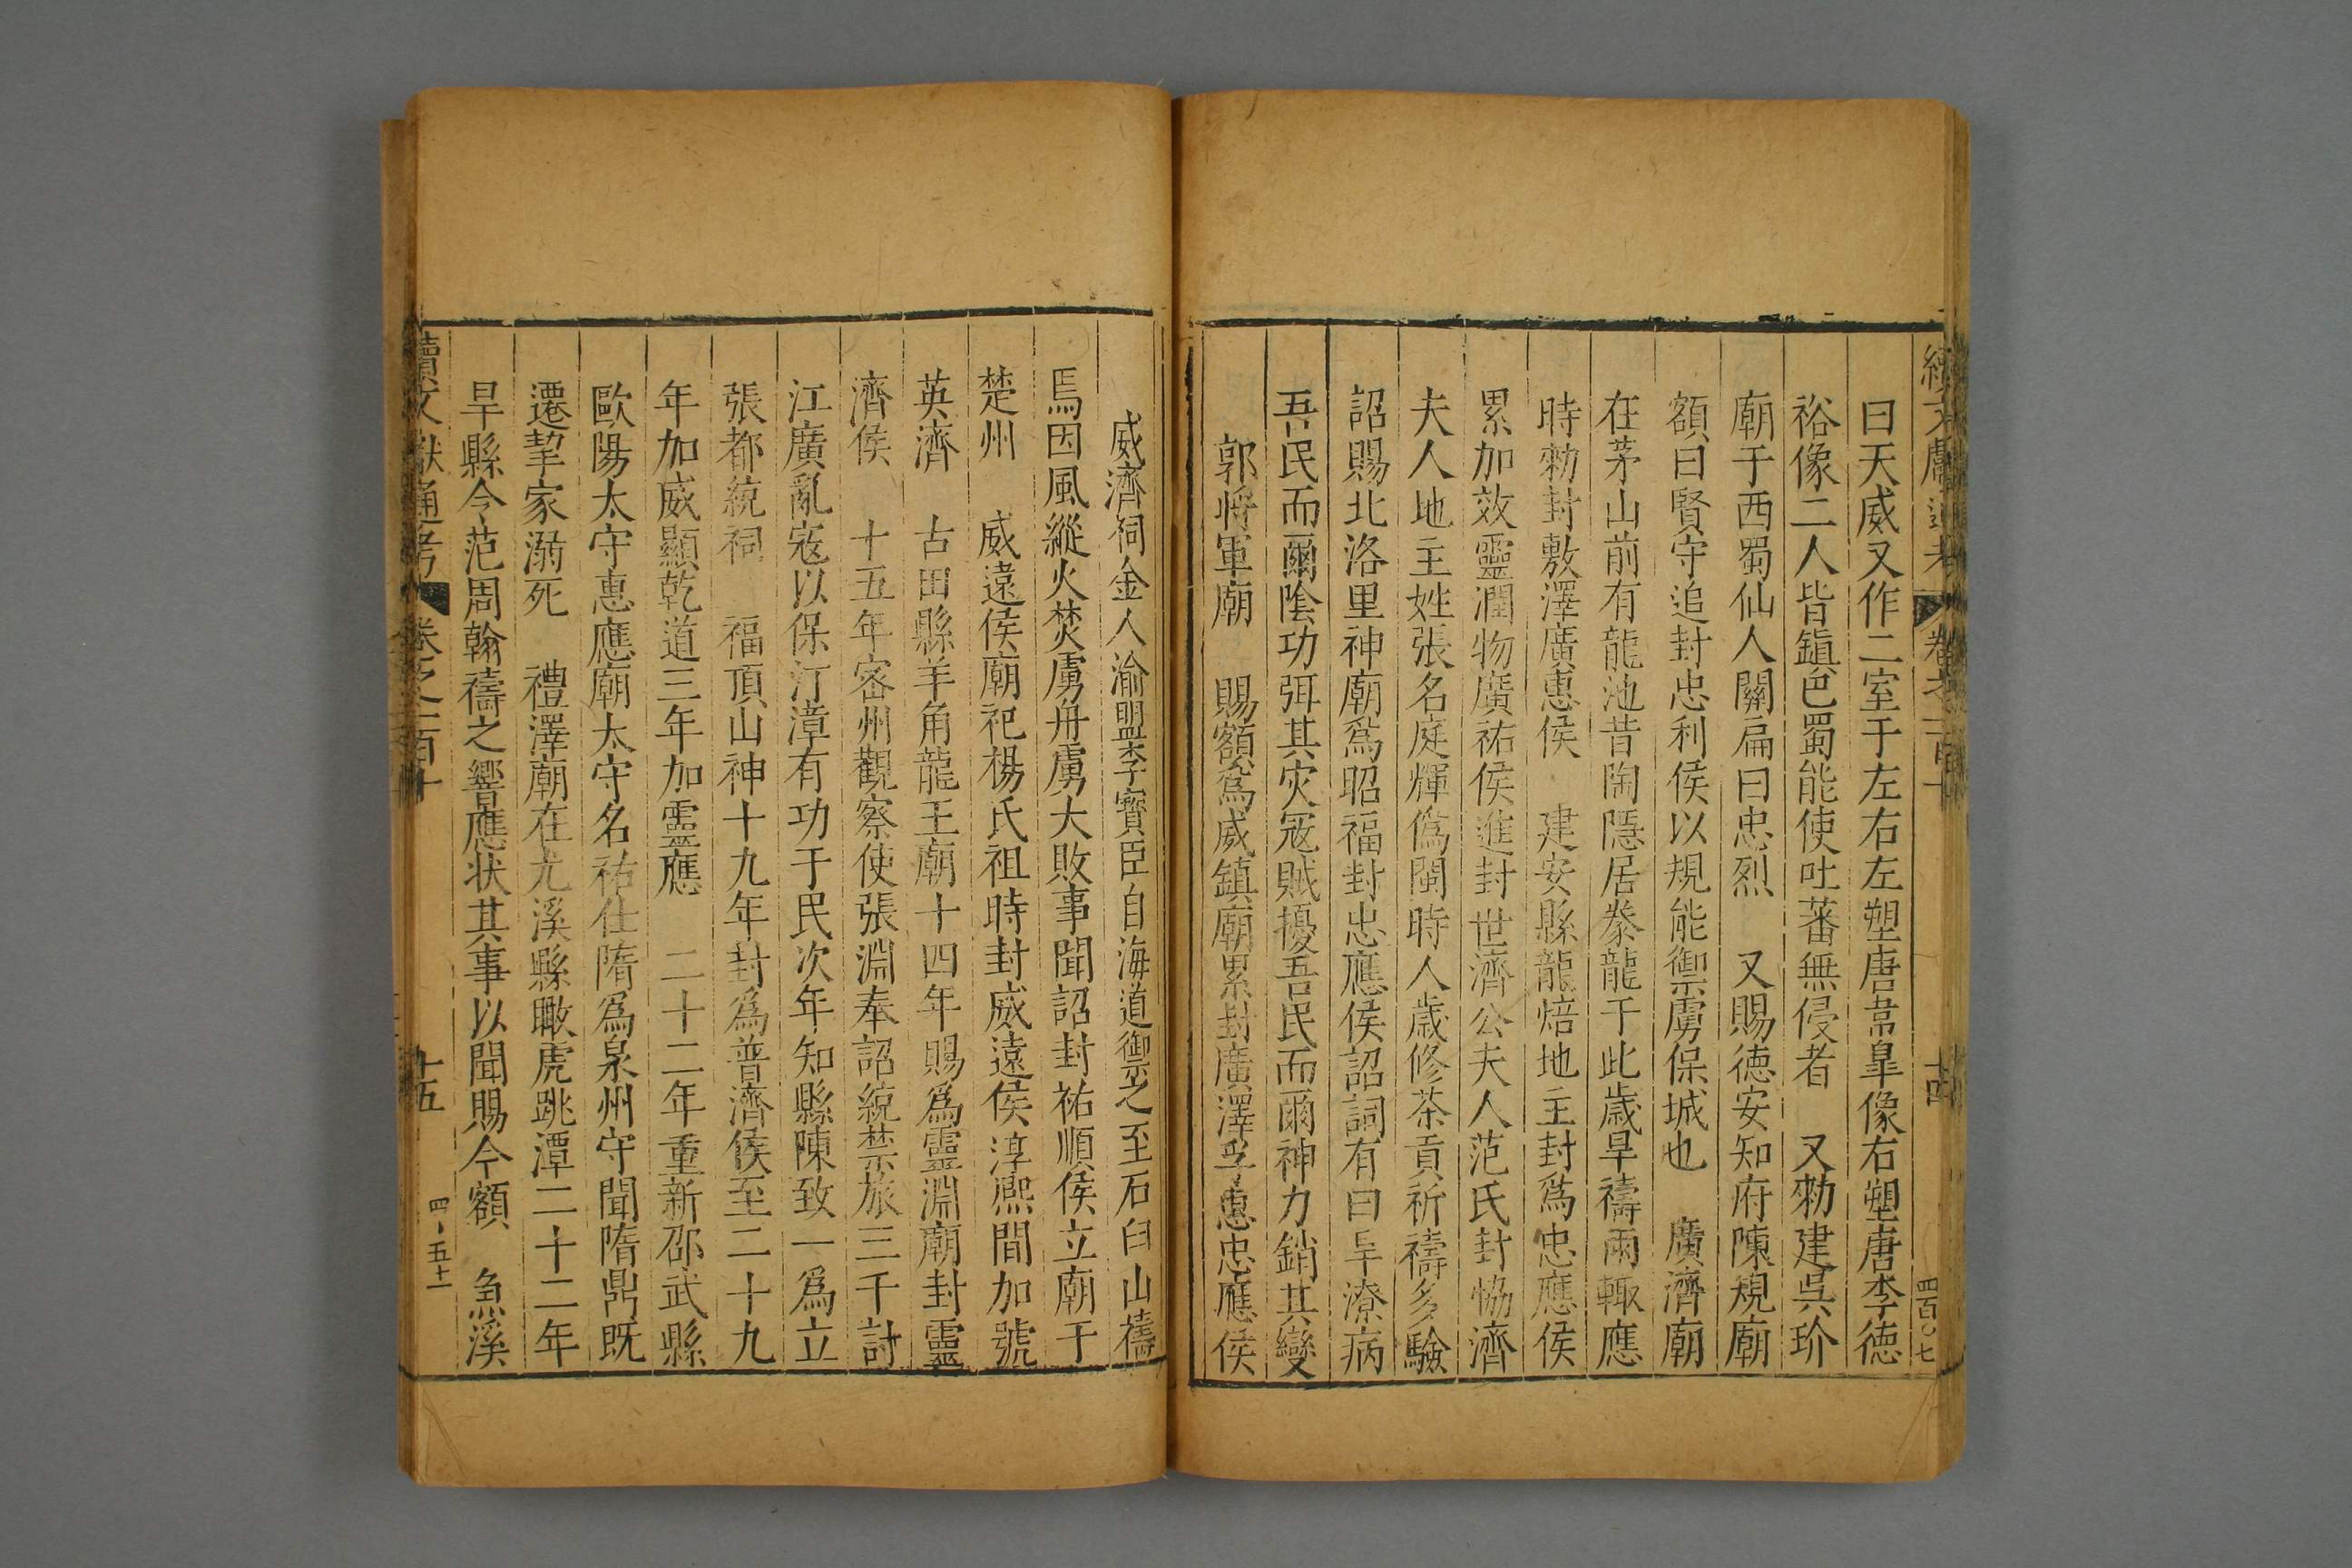 續文獻通考 卷之一百十 十四 四百〇七
曰天威又作二室于左右左塑唐韋臯像右塑唐李德
裕像二人皆鎮巴蜀能使吐蕃無侵者 又勑建吳玠
廟于西蜀仙人關扁曰忠烈 又賜德安知府陳規廟
額曰賢守追封忠利侯以規能禦虜保城也 廣濟廟
在茅山前有龍池昔陶隱居豢龍于此歲旱禱雨輒應
時勑封敷澤廣惠侯 建安縣龍焙地主封爲忠應侯
累加效靈潤物廣祐侯進封世濟公夫人范氏封恊濟
夫人地主姓張名庭輝僞閩時人歲修茶貢祈禱多驗
詔賜北洛里神廟爲昭福封忠應侯詔詞有曰旱潦病
吾民而爾陰功弭其灾寇賊擾吾民而爾神力銷其變
郭將軍廟 賜額爲威鎮廟累封廣澤孚惠忠應侯
威濟祠金人渝盟李寶臣自海道禦之至石臼山禱
焉因風縱火焚虜舟虜大敗事聞詔封祐順侯立廟于
楚州 威遠侯廟祀楊氏祖時封威遠侯淳熙間加號
英濟 古田縣羊角龍王廟十四年賜爲靈淵廟封靈
濟侯 十五年密州觀察使張淵奉詔統禁旅三千討
江廣亂寇以保汀漳有功于民次年知縣陳致一爲立
張都統祠 福頂山神十九年封爲普濟侯至二十九
年加威顯乾道三年加靈應 二十二年重新邵武縣
歐陽太守惠應廟太守名祐仕隋爲泉州守聞隋鼎既
遷挈家溺死 禮澤廟在尤溪縣瞰虎跳潭二十二年
旱縣令范周翰禱之響應状其事以聞賜今額 魚溪
續文獻通考 卷之一百十 十五 四丶五十一